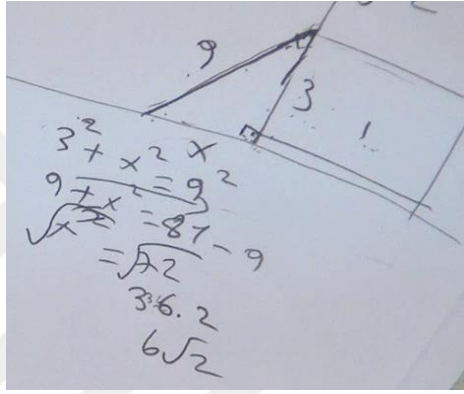 9
3
1
x
3² + x² = 9²
9 + x² = 81 - 9
√x² = √72
36.2
6√2